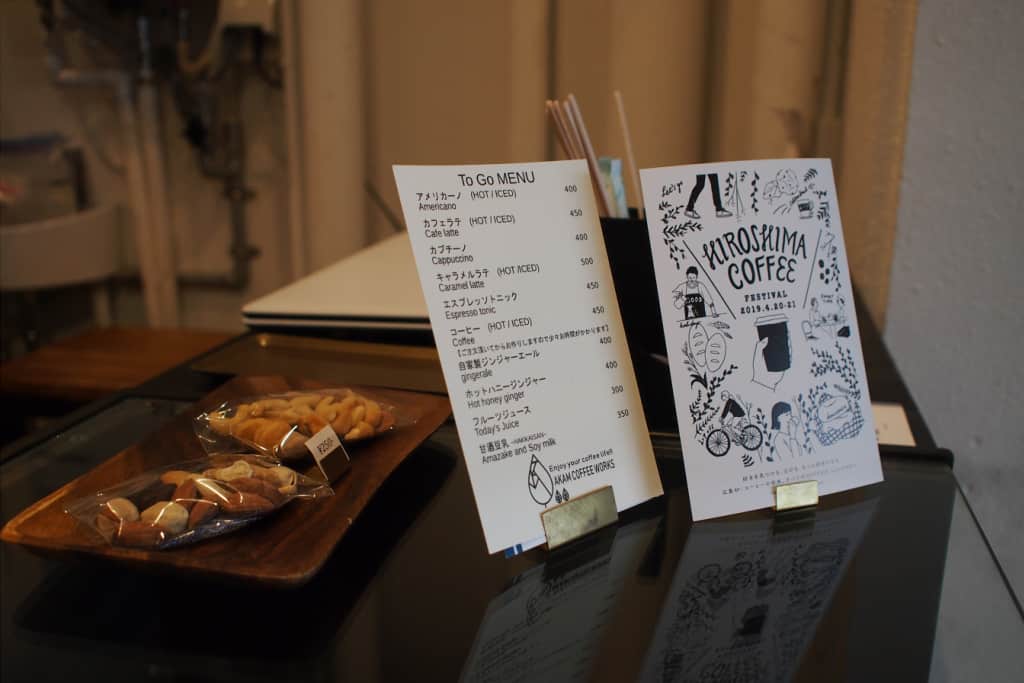 To Go MENU
アメリカーノ (HOT / ICED) 400
Americano
カフェラテ (HOT / ICED) 450
Cafe latte
カプチーノ 400
Cappuccino
キャラメルラテ (HOT /ICED) 500
Caramel latte
エスプレッソトニック 450
Espresso tonic
コーヒー (HOT / ICED) 450
Coffee
【ご注文頂いてからお作りしますので少々お時間がかかります】
自家製ジンジャーエール 400
gingerale
ホットハニージンジャー 400
Hot honey ginger
フルーツジュース 300
Today's Juice
甘酒豆乳 ~HAKKAISAN~ 350
Amazake and Soy milk
Enjoy your coffee life!!
AKAM COFFEE WORKS
¥250-
HIROSHIMA
COFFEE
FESTIVAL
2019.4.20-21